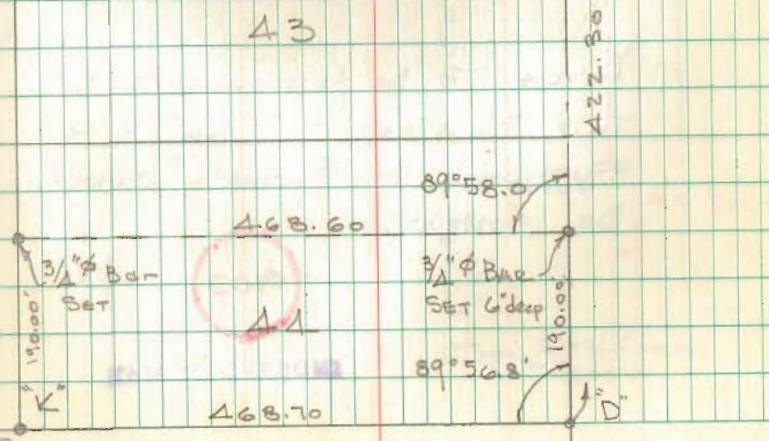 43
422.30
89°58.0
468.60
3/4"ø Bar
SET
3/4"ø Bar
SET 6"deep
190.00'
190.00'
44
89°56.8'
"K"
468.70
"D"